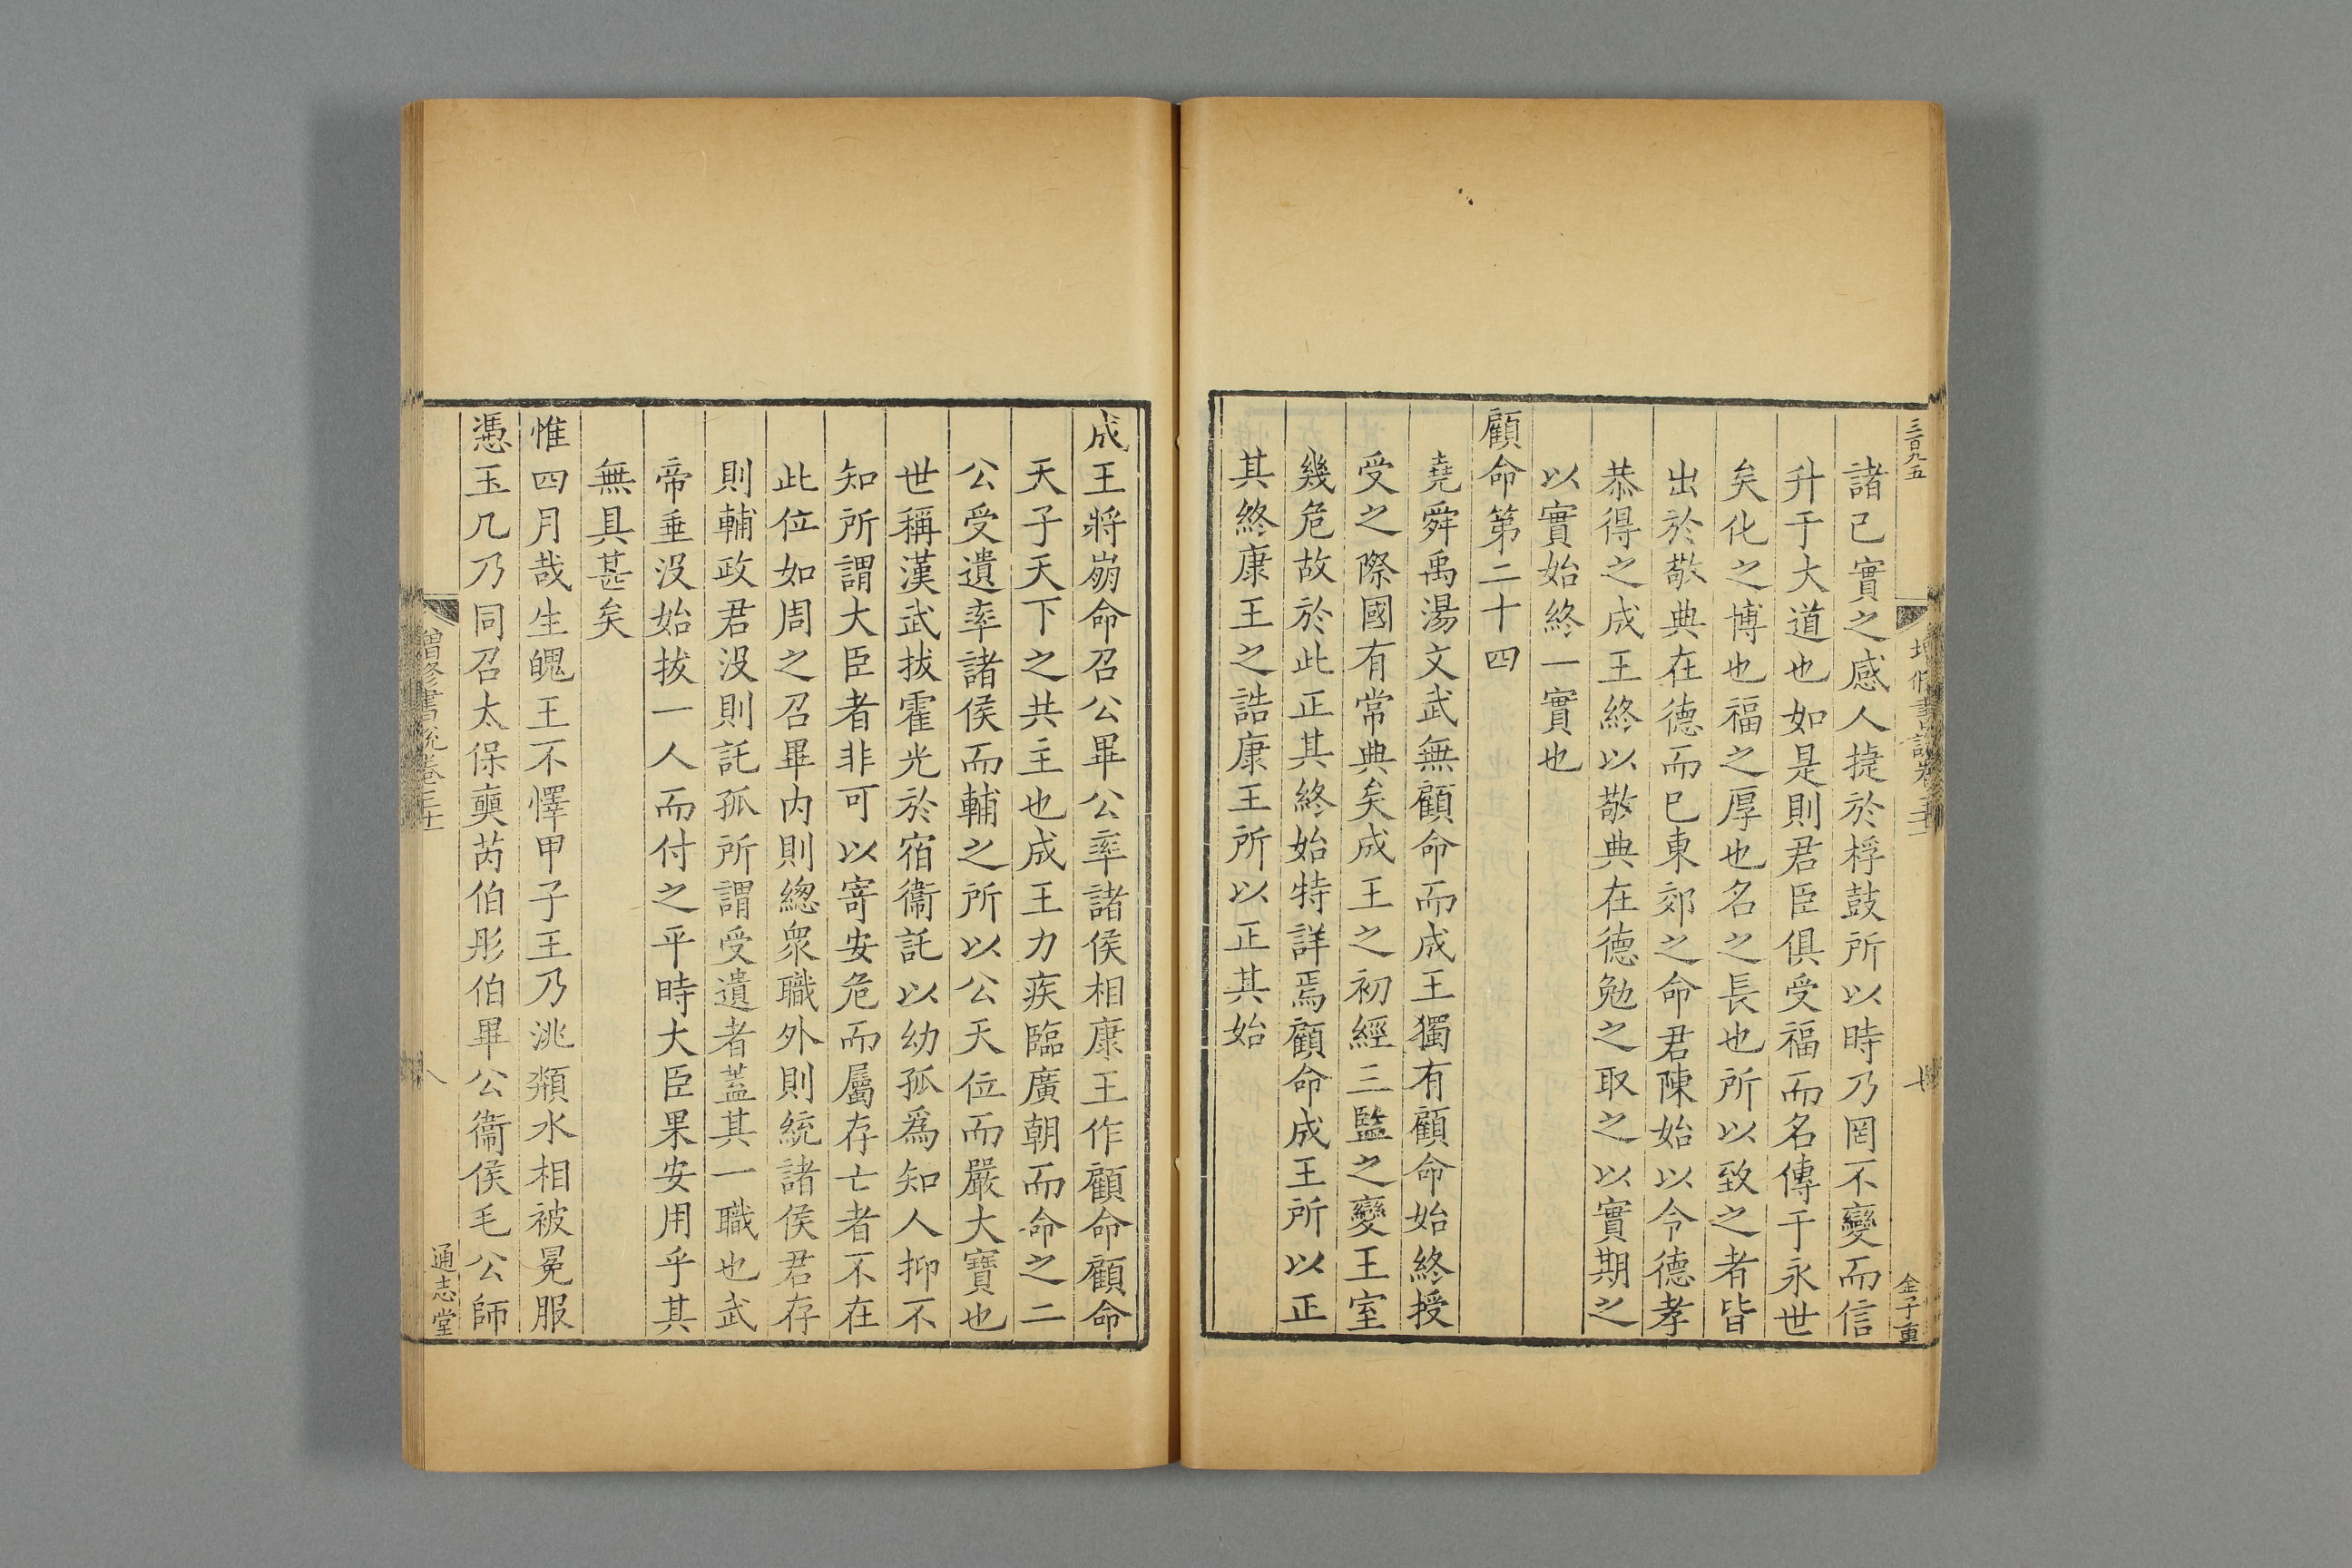 三百九五
金子重
諸己實之感人捷於桴鼓所以時乃罔不變而信
升于大道也如是則君臣俱受福而名傳于永世
矣化之博也福之厚也名之長也所以致之者皆
出於敬典在德而已東郊之命君陳始以令德孝
恭得之成王終以敬典在德勉之取之以實期之
以實始終一實也
顧命第二十四
堯舜禹湯文武無顧命而成王獨有顧命始終授
受之際國有常典矣成王之初經三監之變王室
幾危故於此正其終始特詳焉顧命成王所以正
其終康王之誥康王所以正其始
成王將崩命召公畢公率諸侯相康王作顧命顧命
天子天下之共主也成王力疾臨廣朝而命之二
公受遺率諸侯而輔之所以公天位而嚴大寶也
世稱漢武拔霍光於宿衞託以幼孤爲知人抑不
知所謂大臣者非可以寄安危而屬存亡者不在
此位如周之召畢内則總衆職外則統諸侯君存
則輔政君没則託孤所謂受遺者蓋其一職也武
帝垂没始拔一人而付之平時大臣果安用乎其
無具甚矣
惟四月哉生魄王不懌甲子王乃洮頮水相被冕服
憑玉几乃同召太保奭芮伯彤伯畢公衞侯毛公師
增修書說卷三十
八
通志堂